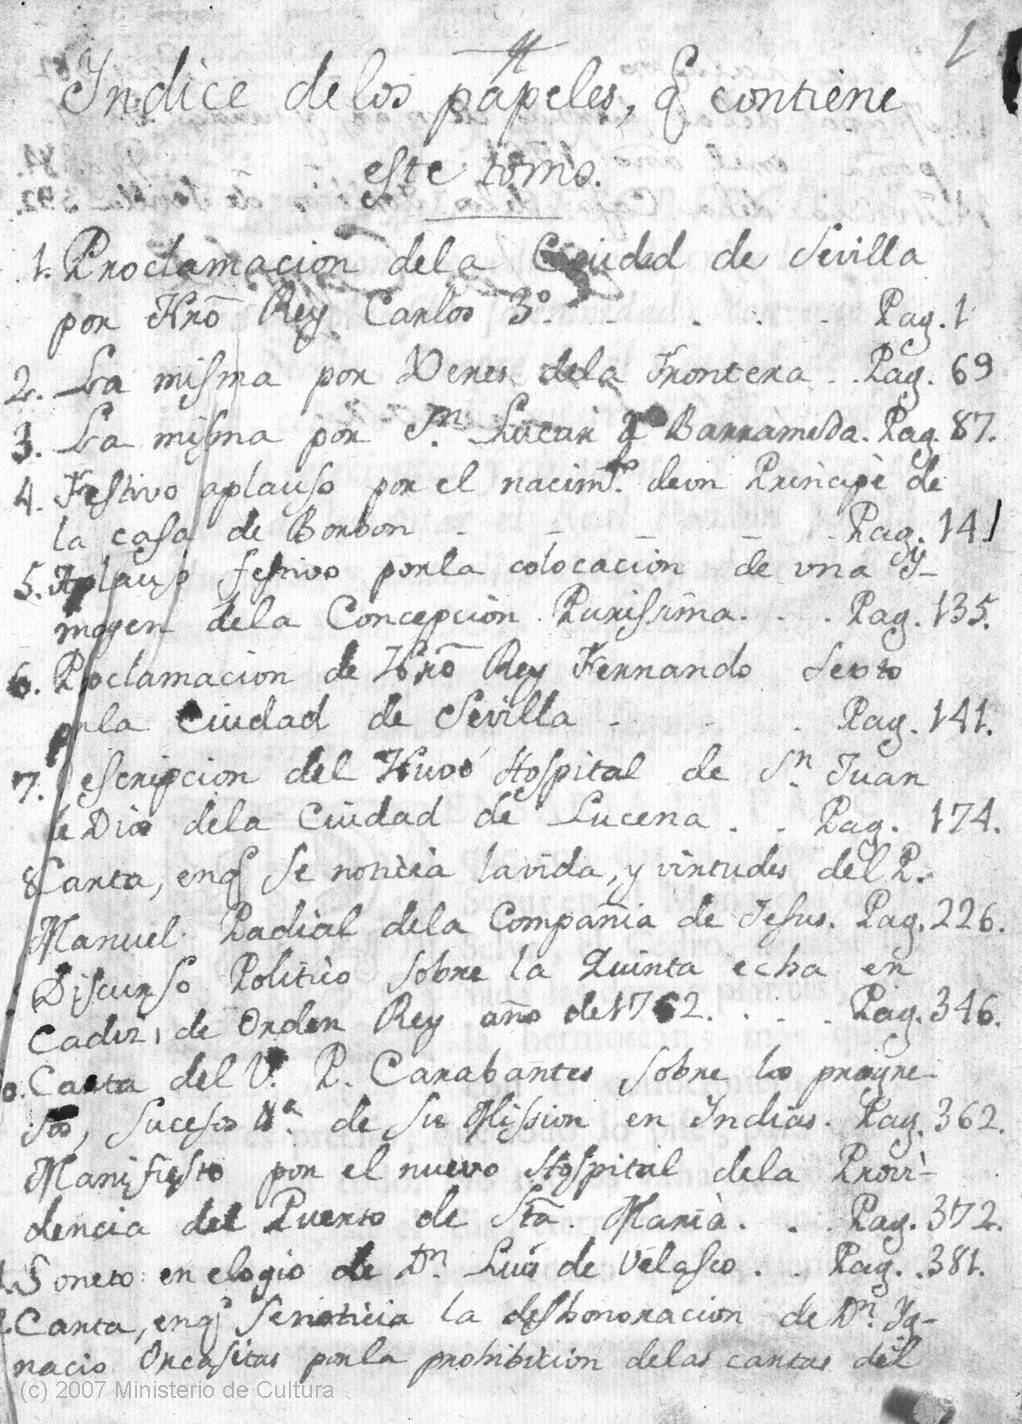 1
Indice delos papeles, q̃ contiene
este tomo.
1. Proclamacion dela Ciudad de Sevilla
por Nrõ Rey Carlos 3º. . . . . Pag. 1
2. La misma por Xerez dela Frontera . . Pag. 69
3. La misma por Sn. Lucar de Barrameda. Pag. 87.
4. Festivo aplauso por el nacimto. deun Principe de
la casa de Borbon . . . . . Pag. 141
5. Aplauso festivo porla colocacion de una Y-
magen dela Concepcion Purissima. . . Pag. 135.
6. Proclamacion de Nrõ Rey Fernando Sexto
porla Ciudad de Sevilla . . . . Pag. 141.
7. escripcion del Nuvo Hospital de Sn. Juan
de Dios dela Ciudad de Lucena . . Pag. 174.
8 Carta, enq̃ se noticia lavida, y virtudes del P.
Manuel Padial dela Compañia de Jesus. Pag. 226.
Discurso Politico sobre la Quinta echa en
Cadiz, de Orden Rey año de 1762. . . . Pag. 346.
0. Carta del V. P. Carabantes sobre los progre-
sos, sucesos &a. de su Mission en Indias. Pag. 362.
Manifiesto por el nuevo Hospital dela Provi-
dencia del Puerto de Stã. Maria. . . Pag. 372.
Soneto en elogio de Dn. Luis de Velasco . . Pag. 381.
Carta, enq̃ senoticia la deshonoracion de Dn. Yg-
nacio Orcasitas porla prohibition delas cartas del
(c) 2007 Ministerio de Cultura